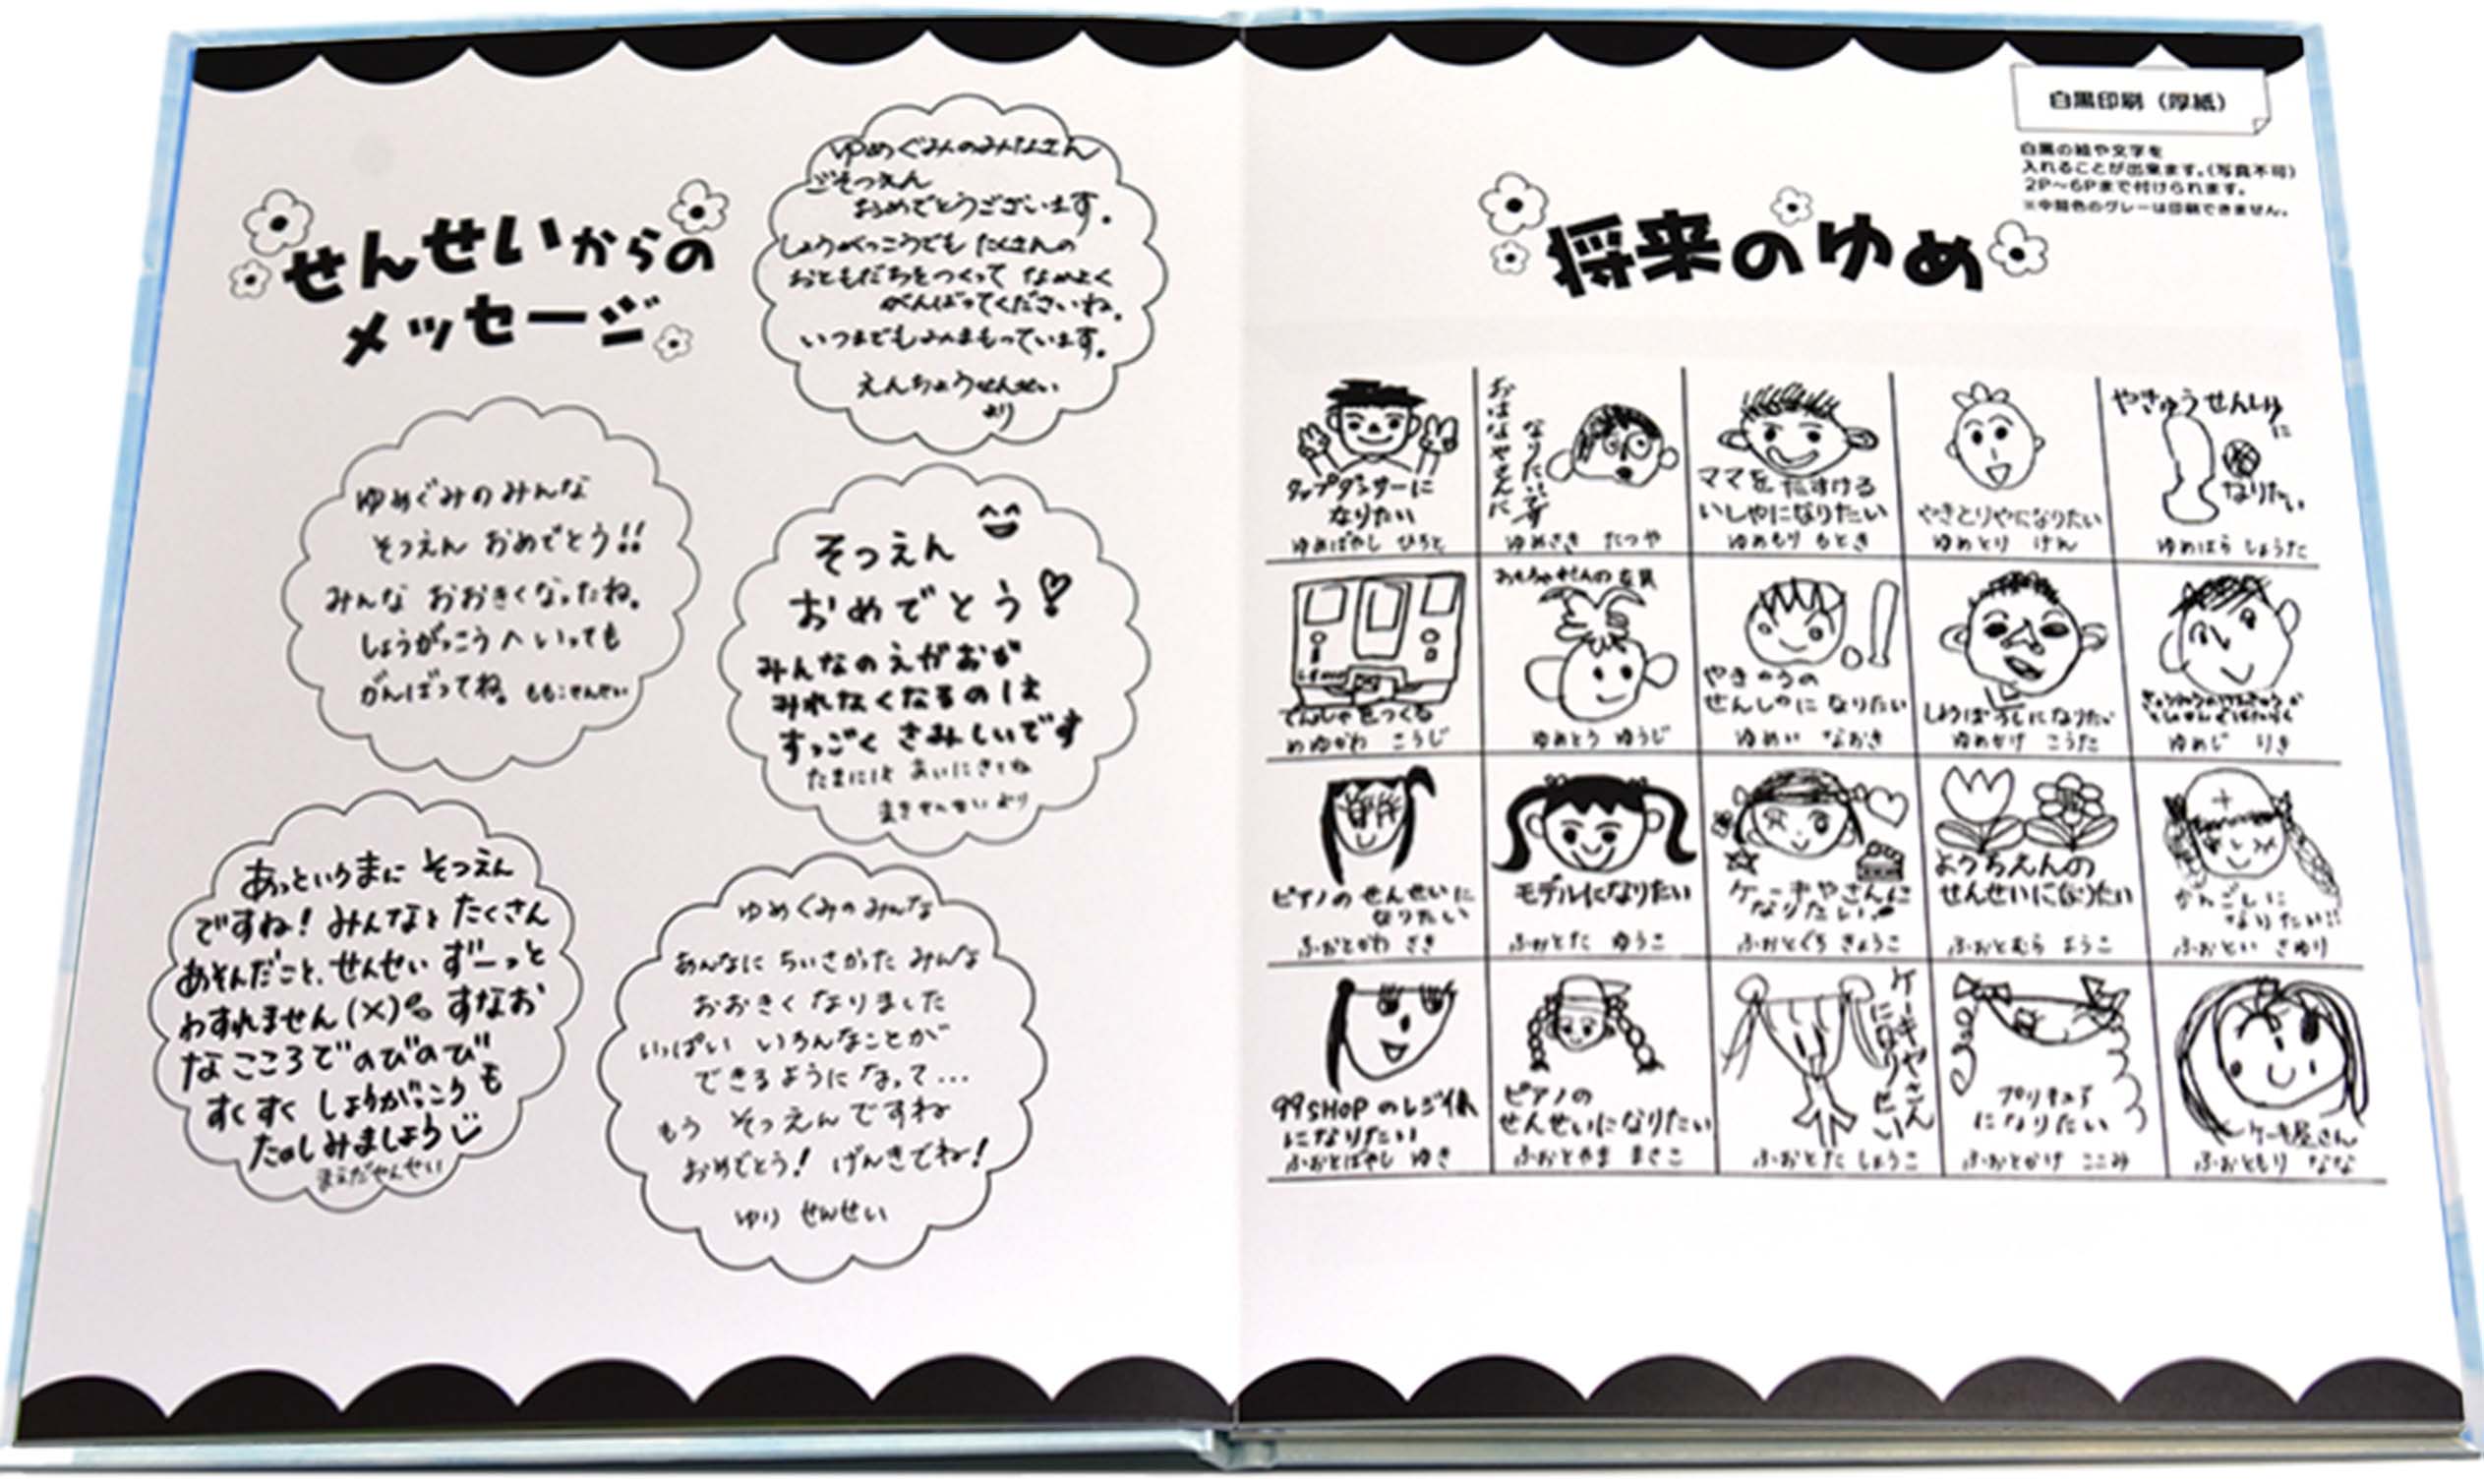 せんせいからの
メッセージ
ゆめぐみのみなさん
ごそつえん
おめでとうございます。
しょうがっこうでも たくさんの
おともだちをつくって なかよく
がんばってくださいね。
いつまでもみまもっています。
えんちょうせんせい
より
ゆめぐみのみんな
そつえん おめでとう!!
みんな おおきくなったね。
しょうがっこうへいっても
がんばってね。 ももこせんせい
そつえん
おめでとう!
みんなのえがおが
みれなくなるのは
すっごく さみしいです
たまには あいにきてね
まきせんせい より
あっというまに そつえん
ですね! みんなと たくさん
あそんだこと、せんせい ずーっと
わすれません(×) すなお
なこころで のびのび
すくすく しょうがっこうも
たのしみましょう
まえだせんせい
ゆめぐみのみんな
あんなに ちいさかった みんな
おおきく なりました
いっぱい いろんなことが
できるように なって…
もう そつえんですね
おめでとう! げんきでね!
ゆり せんせい
白黒印刷（厚紙）
白黒の絵や文字を
入れることが出来ます。(写真不可)
2P〜6Pまで付けられます。
※中間色のグレーは印刷できません。
将来のゆめ
タップダンサーに
なりたい
ゆめばやし ひろと
おはなやさんに
なりたいです
ゆめさき たつや
ママをたすける
いしゃになりたい
ゆめもり もとき
やきとりやになりたい
ゆめとり けん
やきゅうせんしゅに
なりたい
ゆめはら しょうた
でんしゃをつくる
ゆめかわ こうじ
おもちゃやさんの店員
ゆめとう ゆうじ
やきゅうの
せんしゅに なりたい
ゆめい なおき
しょうぼうしになりたい
ゆめかげ こうた
ゆめじ りき
ピアノのせんせいに
なりたい
ふおとがわ さき
モデルになりたい
ふおとた ゆうこ
ケーキやさんに
なりたい
ふおとぐち きょうこ
ようちえんの
せんせいになりたい
ふおとむら ようこ
かんごしに
なりたい!!
ふおとい さゆり
99SHOPのレジ係
になりたい
ふおとばやし ゆき
ピアノの
せんせいになりたい
ふおとやま まさこ
ケーキやさん
になりたい
ふおとた しょうこ
プリキュア
になりたい
ふおとかげ ここみ
ケーキ屋さん
ふおともり なな